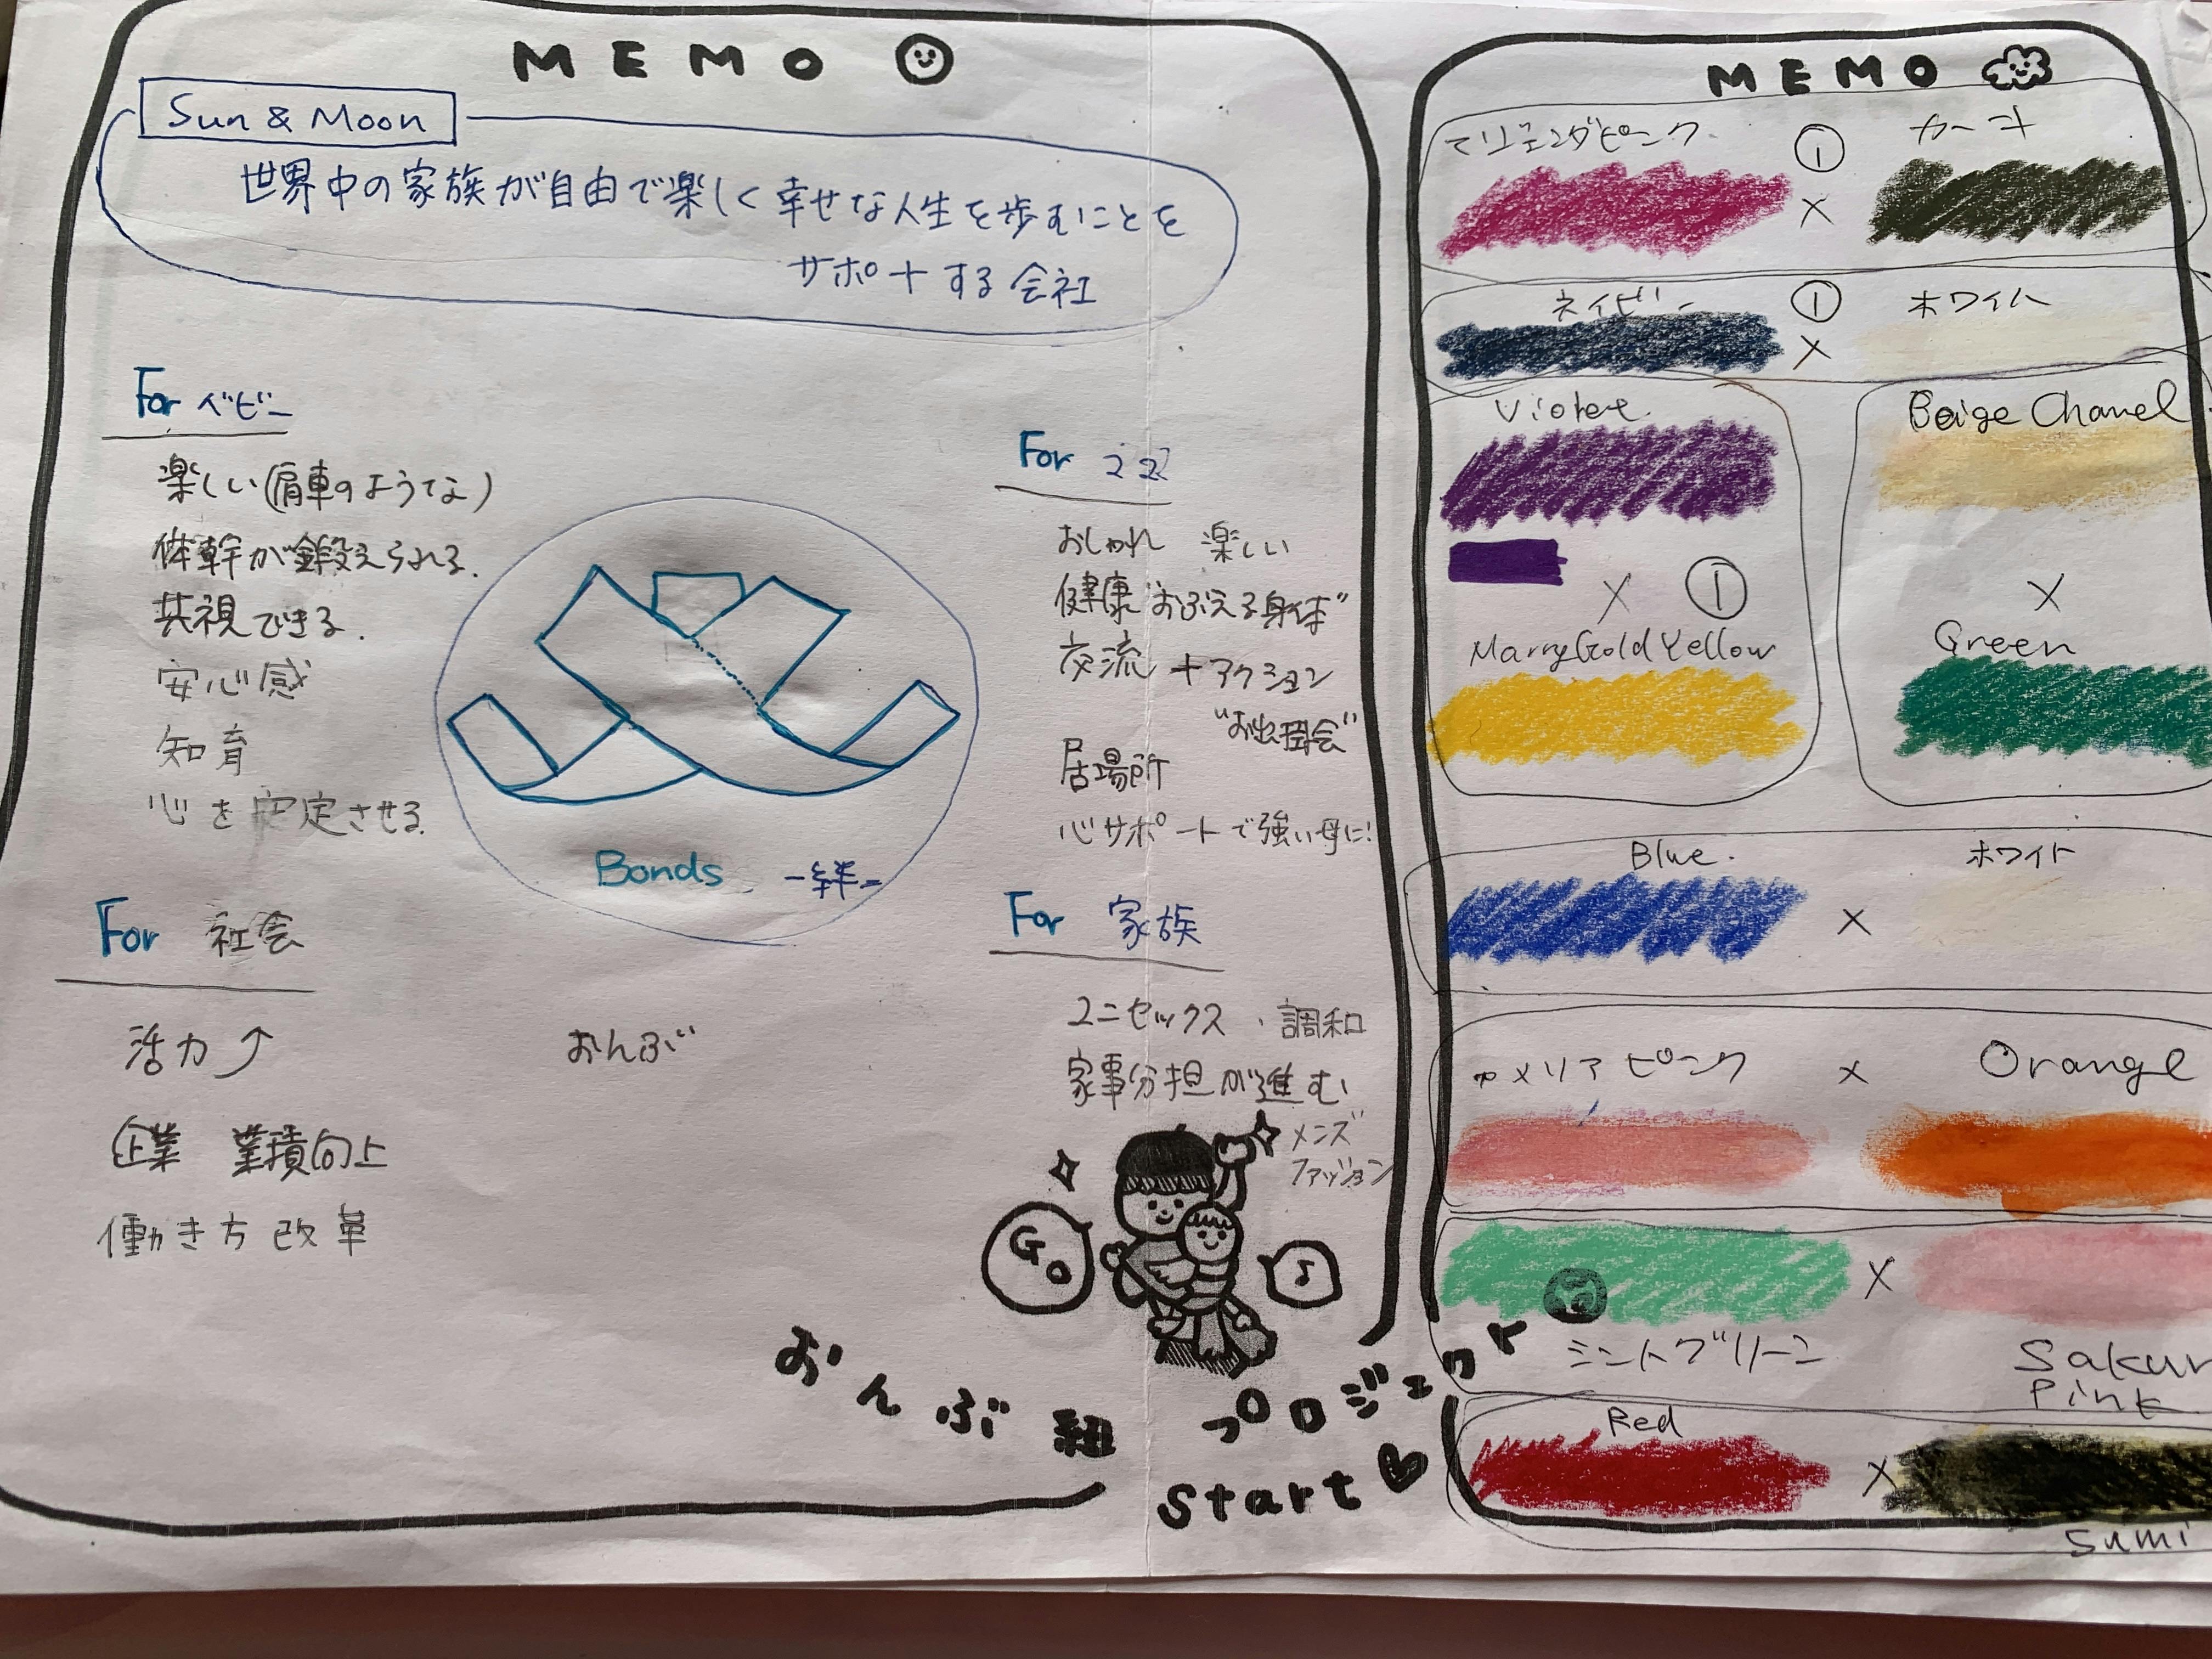 MEMO
Sun & Moon
世界中の家族が自由で楽しく幸せな人生を歩むことを
サポートする会社
For ベビー
楽しい(肩車のような)
体幹が鍛えられる.
共視できる.
安心感
知育
心を安定させる.
For ママ
おしゃれ 楽しい
健康 "おぶえる身体"
交流 + アクション
"お出掛会"
居場所
心サポートで強い母に!
Bonds -絆-
For 社会
活力↑
企業 業績向上
働き方改革
おんぶ
For 家族
ユニセックス・調和
家事分担が進む
メンズ
ファッション
Go
♪
おんぶ紐 プロジェクト
start♥
MEMO
マリェンダピンク ① × カーキ
ネイビー ① × ホワイト
Violet.
× ①
MarryGold Yellow
Beige Chanel
×
Green
Blue. × ホワイト
カメリアピンク × Orange
×
ミントグリーン
Sakur
Pink
Red
×
Sumi